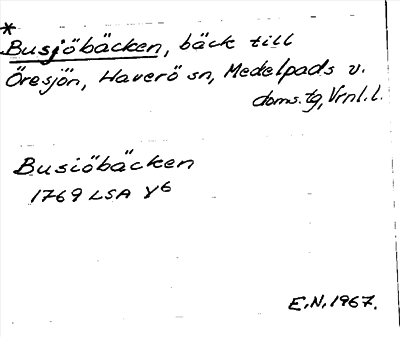 *
Busjöbäcken, bäck till
Öresjön, Haverö sn, Medelpads v.
doms.tg, Vrnl.l.
Busiöbäcken
1769 LSA Y6
E.N. 1967.